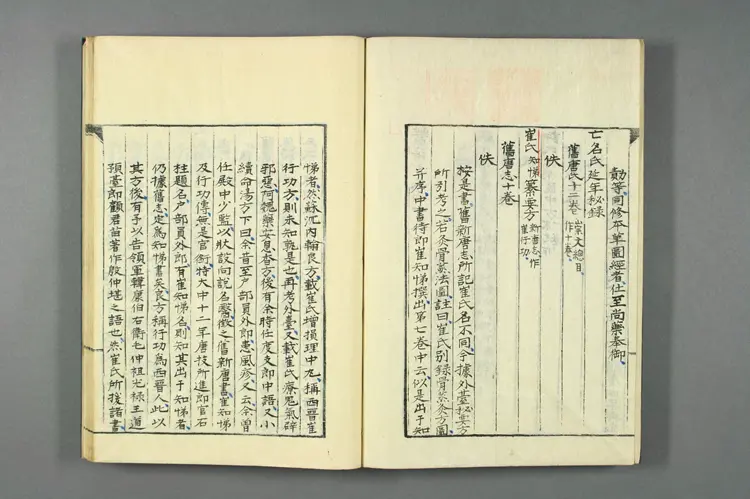 勣等同修本草圖經者仕至尚藥奉御
亡名氏延年秘錄
舊唐志十二卷 崇文總目作十卷
佚
崔氏知悌纂要方 新唐志作崔行功
舊唐志十卷
佚
按是書舊新唐志所記崔氏名不同今據外臺秘要方
所引考之右灸骨蒸法圖註曰崔氏別錄骨蒸灸方圖
并序中書侍郎崔知悌撰出第七卷中云似是出于知
悌者然蘇沉内翰良方載崔氏增損理中丸稱西晉崔
行功方則未知孰是也再考外臺又載崔氏療鬼氣辟
邪惡阿魏藥安息香方後有余時任度支郎中語又小
續命湯方下曰余昔至户部員外郎患風疹又云余曾
任殿中少監以狀説向名醫徵之舊新唐書崔知悌
及行功傳無是官銜特大中十二年唐技所進郎官石
柱題名户部員外郎有崔知悌名則知其出于知悌者
仍據舊志定為知悌書矣良方稱行功為西晉人此以
其方後有予以告領軍韓康伯右衛毛仲祖光祿王道
預臺郎顧君苗著作殷仲堪之語也然崔氏所援諸書